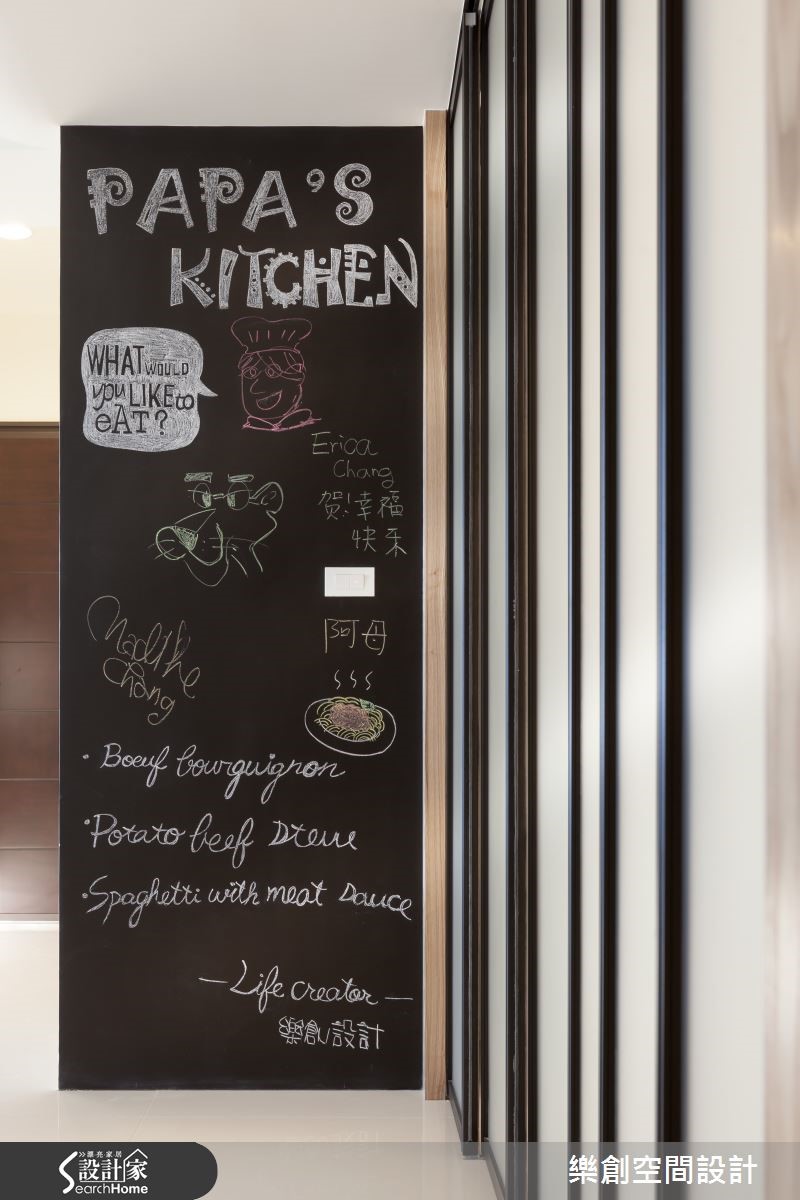 PAPA'S
KITCHEN
WHAT WOULD
you LIKE to
eAT?
Erica
Chang
賀!幸福
快禾
阿母
Chang
· Boeuf bourguignon
· Potato beef Stew
· Spaghetti with meat sauce
— Life creator —
樂創設計
漂亮家居
設計家
SearchHome
樂創空間設計